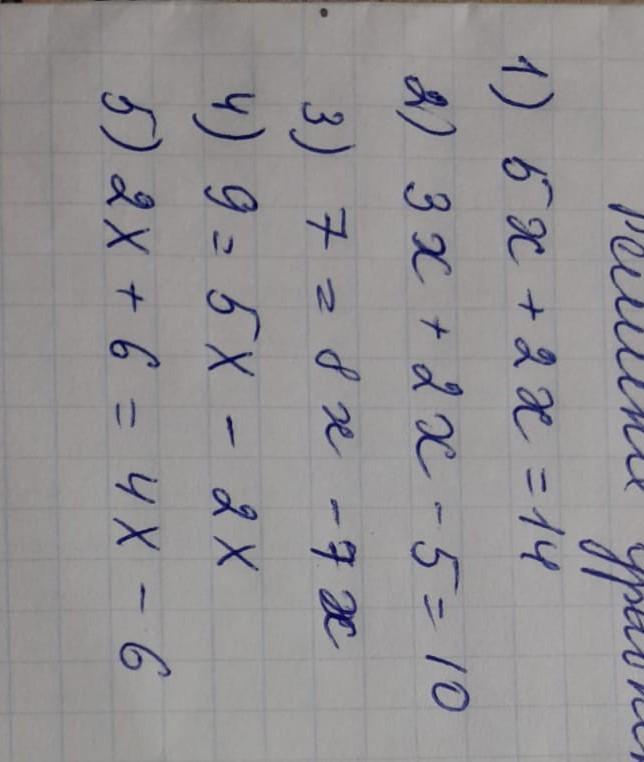 Решите
1) 5x + 2x = 14
2) 3x + 2x - 5 = 10
3) 7 = 8x - 7x
4) 9 = 5x - 2x
5) 2x + 6 = 4x - 6